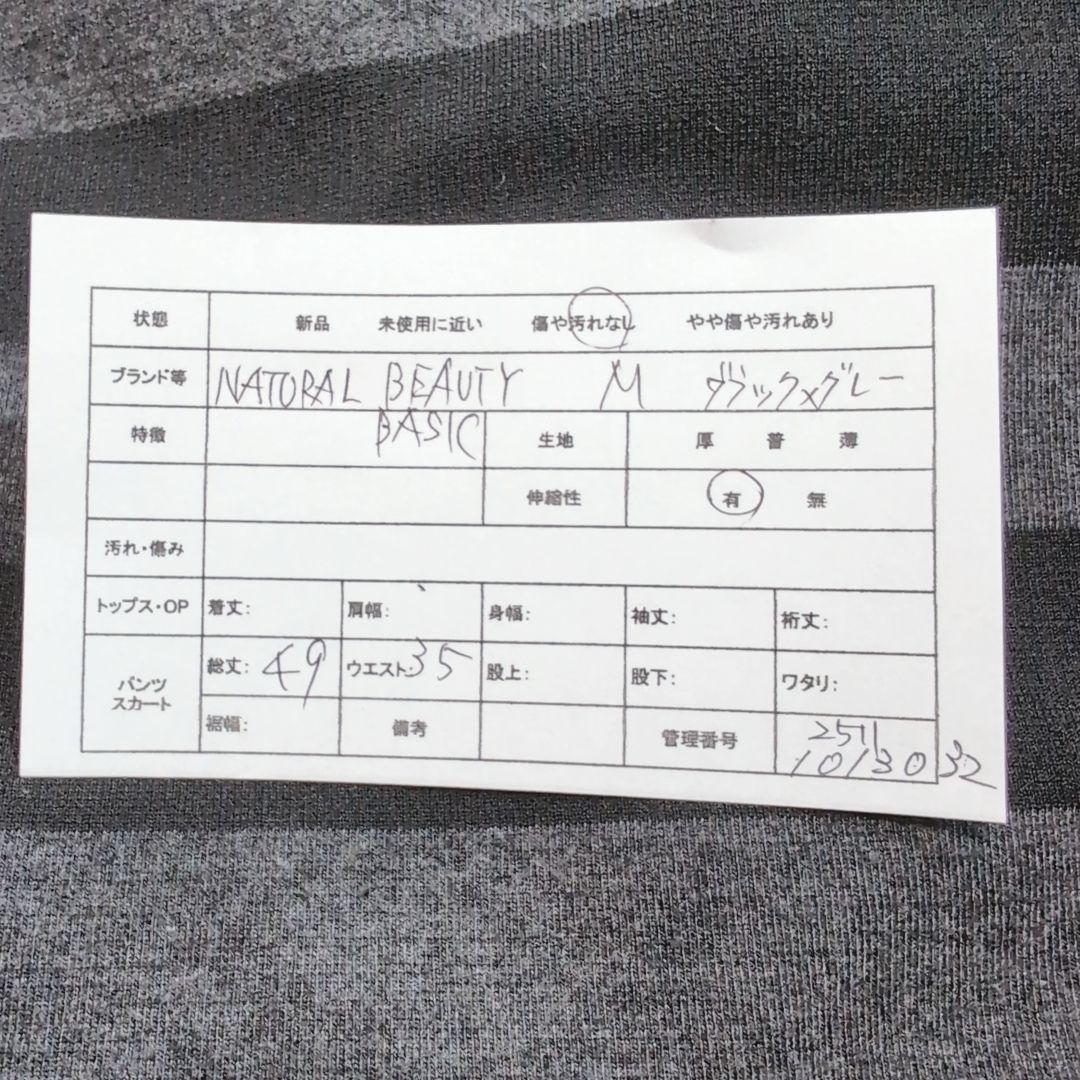 状態 新品 未使用に近い 傷や汚れなし やや傷や汚れあり
ブランド等 NATURAL BEAUTY M ブラック×グレー
BASIC
特徴 生地 厚 普 薄
伸縮性 有 無
汚れ・傷み
トップス・OP 着丈: 肩幅: 身幅: 袖丈: 裄丈:
パンツ
スカート
総丈: 49 ウエスト: 35 股上: 股下: ワタリ:
裾幅: 備考 管理番号 2511
10130 32